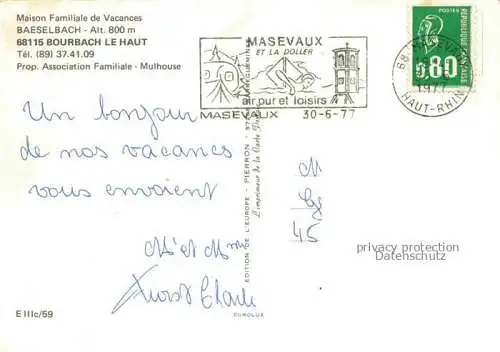 Maison Familiale de Vacances
BAESELBACH - Alt. 800 m
68115 BOURBACH LE HAUT
Tél. (89) 37.41.09
Prop. Association Familiale - Mulhouse
MASEVAUX
ET LA DOLLER
air pur et loisirs
MASEVAUX 30-6-77
POSTES
RÉPUBLIQUE FRANÇAISE
0,80
68 MASEVAUX
1977
HAUT-RHIN
Un bonjour
de nos vacances
vous envoient
Mr et Mme
Charle
M
45
EDITION DE L'EUROPE - PIERRON -
L'imprimeur de la Carte
EUROLUX
E IIIc/59
privacy protection
Datenschutz